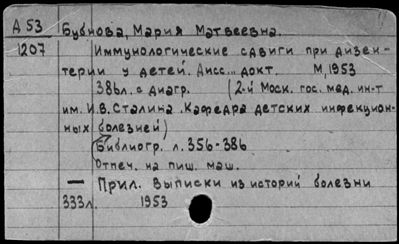 А 53 Бубнова, Мария Матвеевна.
1207 Иммунологические сдвиги при дизен-
терии у детей. Дисс... докт. М, 1953
386л. с диагр. (2-й Моск. гос. мед. ин-т
им. И.В. Сталина. Кафедра детских инфекцион-
ных болезней)
Библиогр. л. 356-386
Отпеч. на пиш. маш.
— Прил. Выписки из историй болезни
333л. 1953